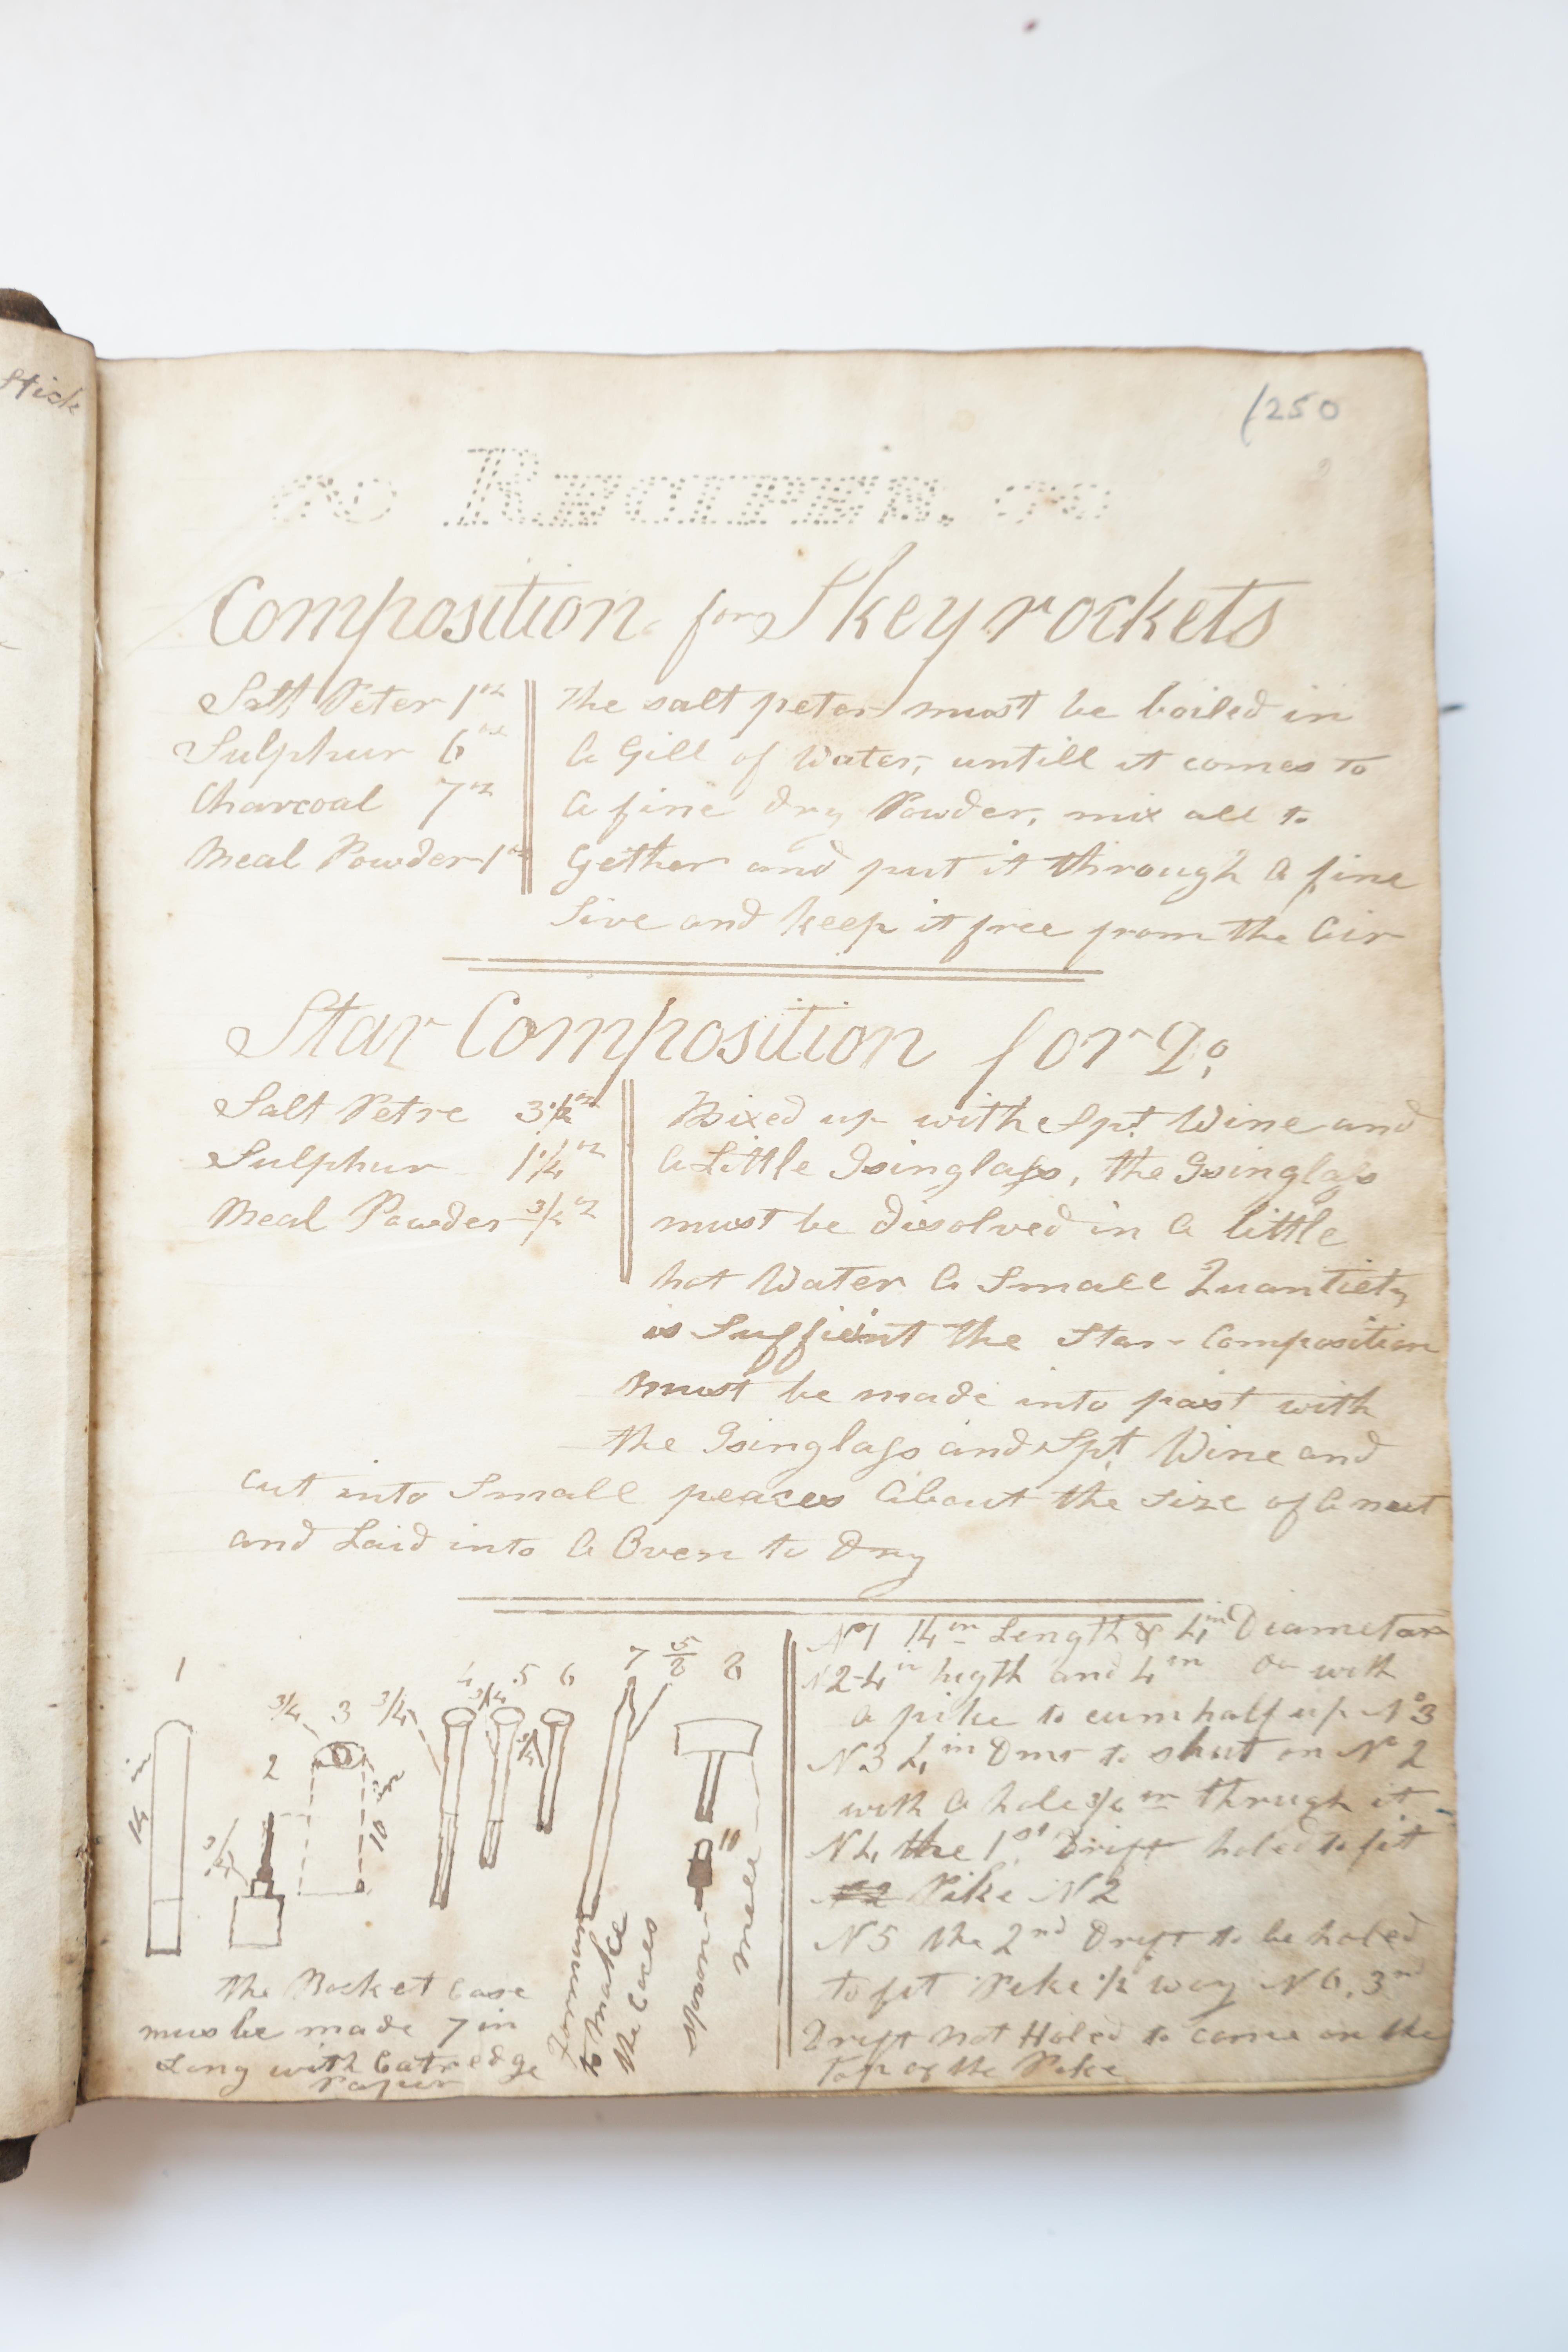 Stick
(250
Recipes.
Composition for Skeyrockets
Salt Peter 1
Sulphur 6
Charcoal 7 oz
Meal Powder 1
The salt peter must be boiled in
a Gill of Water, untill it comes to
a fine dry Powder, mix all to
Gether and put it through a fine
Sive and keep it free from the Air
Star Composition for Do
Salt Petre 3½ oz
Sulphur 1¼ oz
Meal Powder ¾ oz
Mixed up with Spt Wine and
a Little Isinglass, the Isinglass
must be disolved in a little
hot Water a Small Quantiety
is Suffient the Star Composition
must be made into past with
the Isinglass and Spt Wine and
cut into Small peaces About the size of a nut
and Laid into a Oven to Dry
1
2
3
4
5
6
7
5/8
8
3/4
3/4
3/4
14 in
10 in
11
The Rocket Case
mus be made 7 in
Long with Catredge
Paper
Formum
to make
the Cases
Spoon
Mall
No1 14 in Length & 4 in Diameter
N2 4 in higth and 4 in Do with
a pike to cum half up No3
N3 4 in Dmr to shut on No 2
with a hole 3/4 in through it
N4 the 1st Drift holed to fit
N2 Pike N2
N5 the 2nd Drift to be holed
to fit Pike ½ way N6. 3rd
Drift not Holed to come on the
Top of the Pike